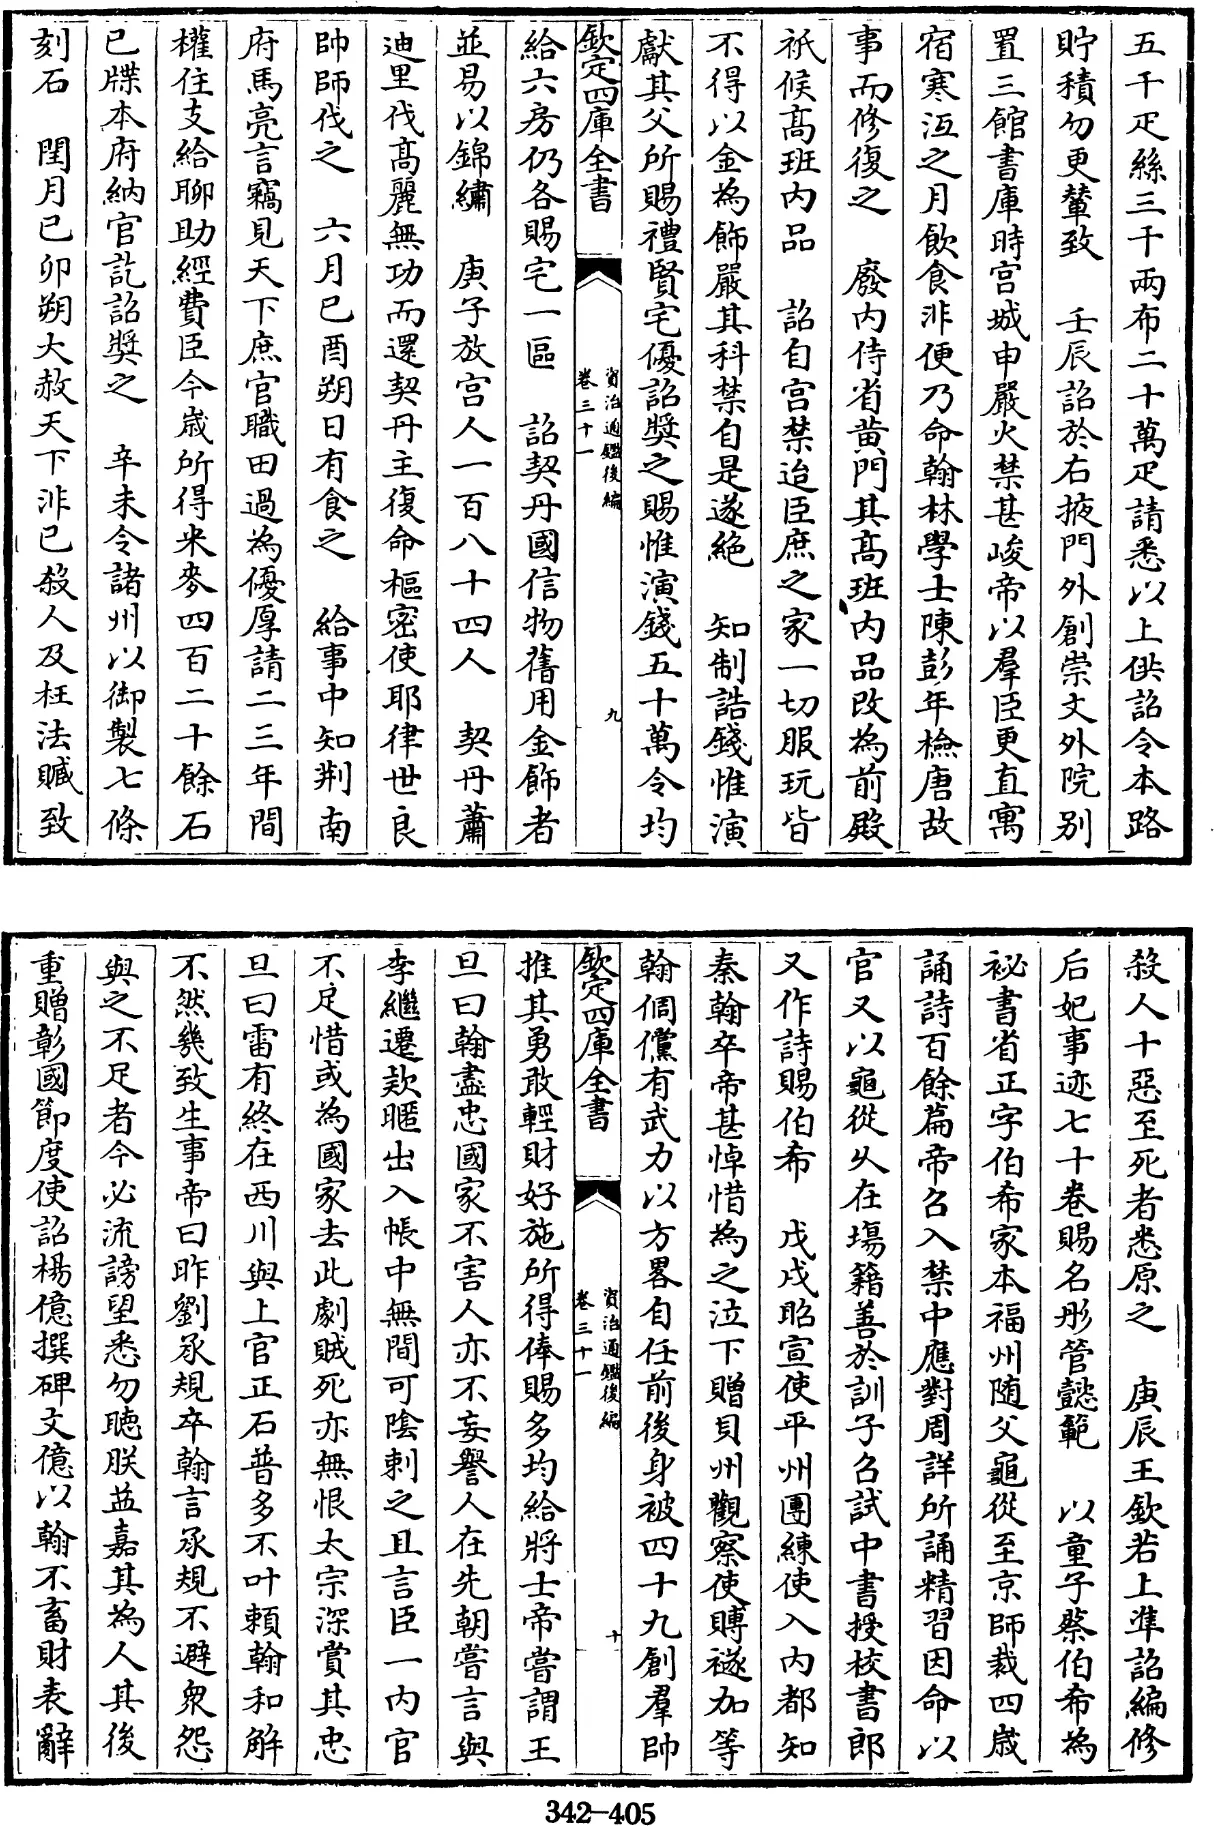 五千疋絲三千兩布二十萬疋請悉以上供詔令本路
貯積勿更輦致　壬辰詔於右掖門外創崇文外院別
置三館書庫時宫城申嚴火禁甚峻帝以羣臣更直寓
宿寒沍之月飲食非便乃命翰林學士陳彭年檢唐故
事而修復之　廢内侍省黄門其髙班内品改為前殿
祇候髙班内品　詔自宫禁迨臣庶之家一切服玩皆
不得以金為飾嚴其科禁自是遂絶　知制誥錢惟演
獻其父所賜禮賢宅優詔奬之賜惟演錢五十萬令均
欽定四庫全書
資治通鑑後編
卷三十一
九
給六房仍各賜宅一區　詔契丹國信物舊用金飾者
並易以錦繡　庚子放宫人一百八十四人　契丹蕭
迪里伐髙麗無功而還契丹主復命樞密使耶律世良
帥師伐之　六月已酉朔日有食之　給事中知荆南
府馬亮言竊見天下庶官職田過為優厚請二三年間
權住支給聊助經費臣今歳所得米麥四百二十餘石
已牒本府納官訖詔奬之　辛未令諸州以御製七條
刻石　閏月已卯朔大赦天下非已殺人及枉法贓致
殺人十惡至死者悉原之　庚辰王欽若上準詔編修
后妃事迹七十卷賜名彤管懿範　以童子蔡伯希為
祕書省正字伯希家本福州随父龜從至京師裁四歳
誦詩百餘篇帝召入禁中應對周詳所誦精習因命以
官又以龜從久在塲籍善於訓子召試中書授校書郎
又作詩賜伯希　戊戌昭宣使平州團練使入内都知
秦翰卒帝甚悼惜為之泣下贈貝州觀察使賻襚加等
翰倜儻有武力以方畧自任前後身被四十九創羣帥
欽定四庫全書
資治通鑑後編
卷三十一
十
推其勇敢輕財好施所得俸賜多均給將士帝嘗謂王
旦曰翰盡忠國家不害人亦不妄譽人在先朝嘗言與
李繼遷欵暱出入帳中無間可陰刺之且言臣一内官
不足惜或為國家去此劇賊死亦無恨太宗深賞其忠
旦曰雷有終在西川與上官正石普多不叶頼翰和解
不然幾致生事帝曰昨劉承規卒翰言承規不避衆怨
與之不足者今必流謗望悉勿聴朕益嘉其為人其後
重贈彰國節度使詔楊億撰碑文億以翰不畜財表辭
342-405